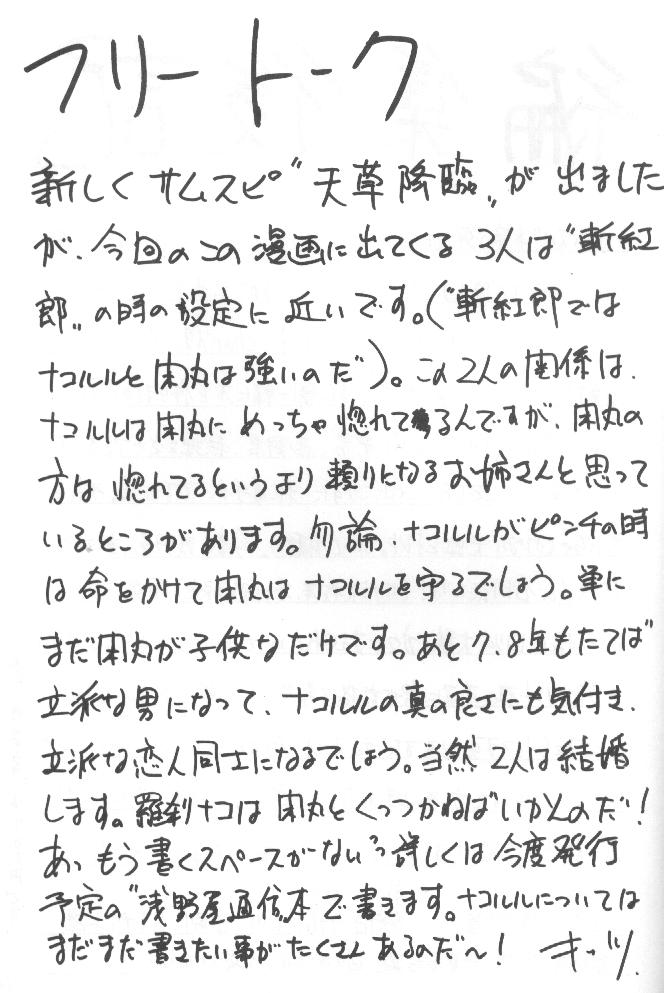 フリートーク
新しくサムスピ〝天草降臨〟が出ました
が、今回のこの漫画に出てくる3人は〝斬紅
郎〟の時の設定に近いです。(〝斬紅郎では
ナコルルと閑丸は強いのだ)。この2人の関係は、
ナコルルは閑丸にめっちゃ惚れてるんですが、閑丸の
方は惚れてるというより頼りになるお姉さんと思って
いるところがあります。勿論、ナコルルがピンチの時
は命をかけて閑丸はナコルルを守るでしょう。単に
まだ閑丸が子供なだけです。あと7、8年もたてば
立派な男になって、ナコルルの真の良さにも気付き、
立派な恋人同士になるでしょう。当然2人は結婚
します。羅刹ナコは閑丸とくっつかねばいかんのだ!
あっもう書くスペースがないっ詳しくは今度発行
予定の〝浅野屋通信〟本で書きます。ナコルルについては
まだまだ書きたい事がたくさんあるのだ〜! キッツ.